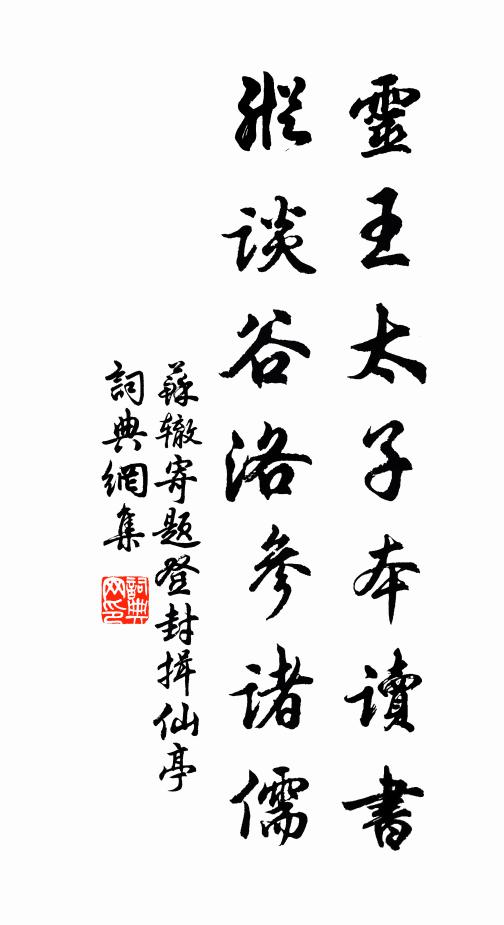 靈王太子本讀書
縱谈谷洛參诸儒
蘇辙寄题登封揖仙亭
詞典網集
詞典網印